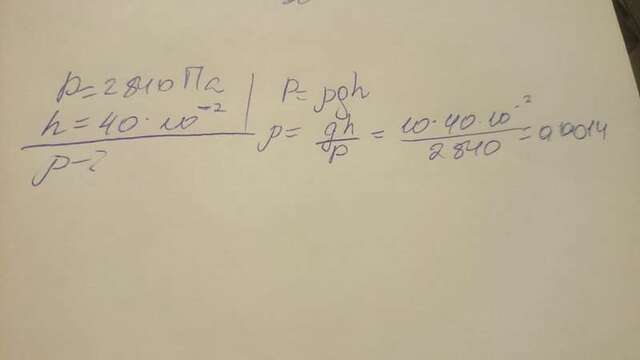 p = 2840 Па
h = 40 · 10⁻²
ρ - ?
P = ρgh
ρ = gh/p = 10 · 40 · 10⁻² / 2840 = 0,0014